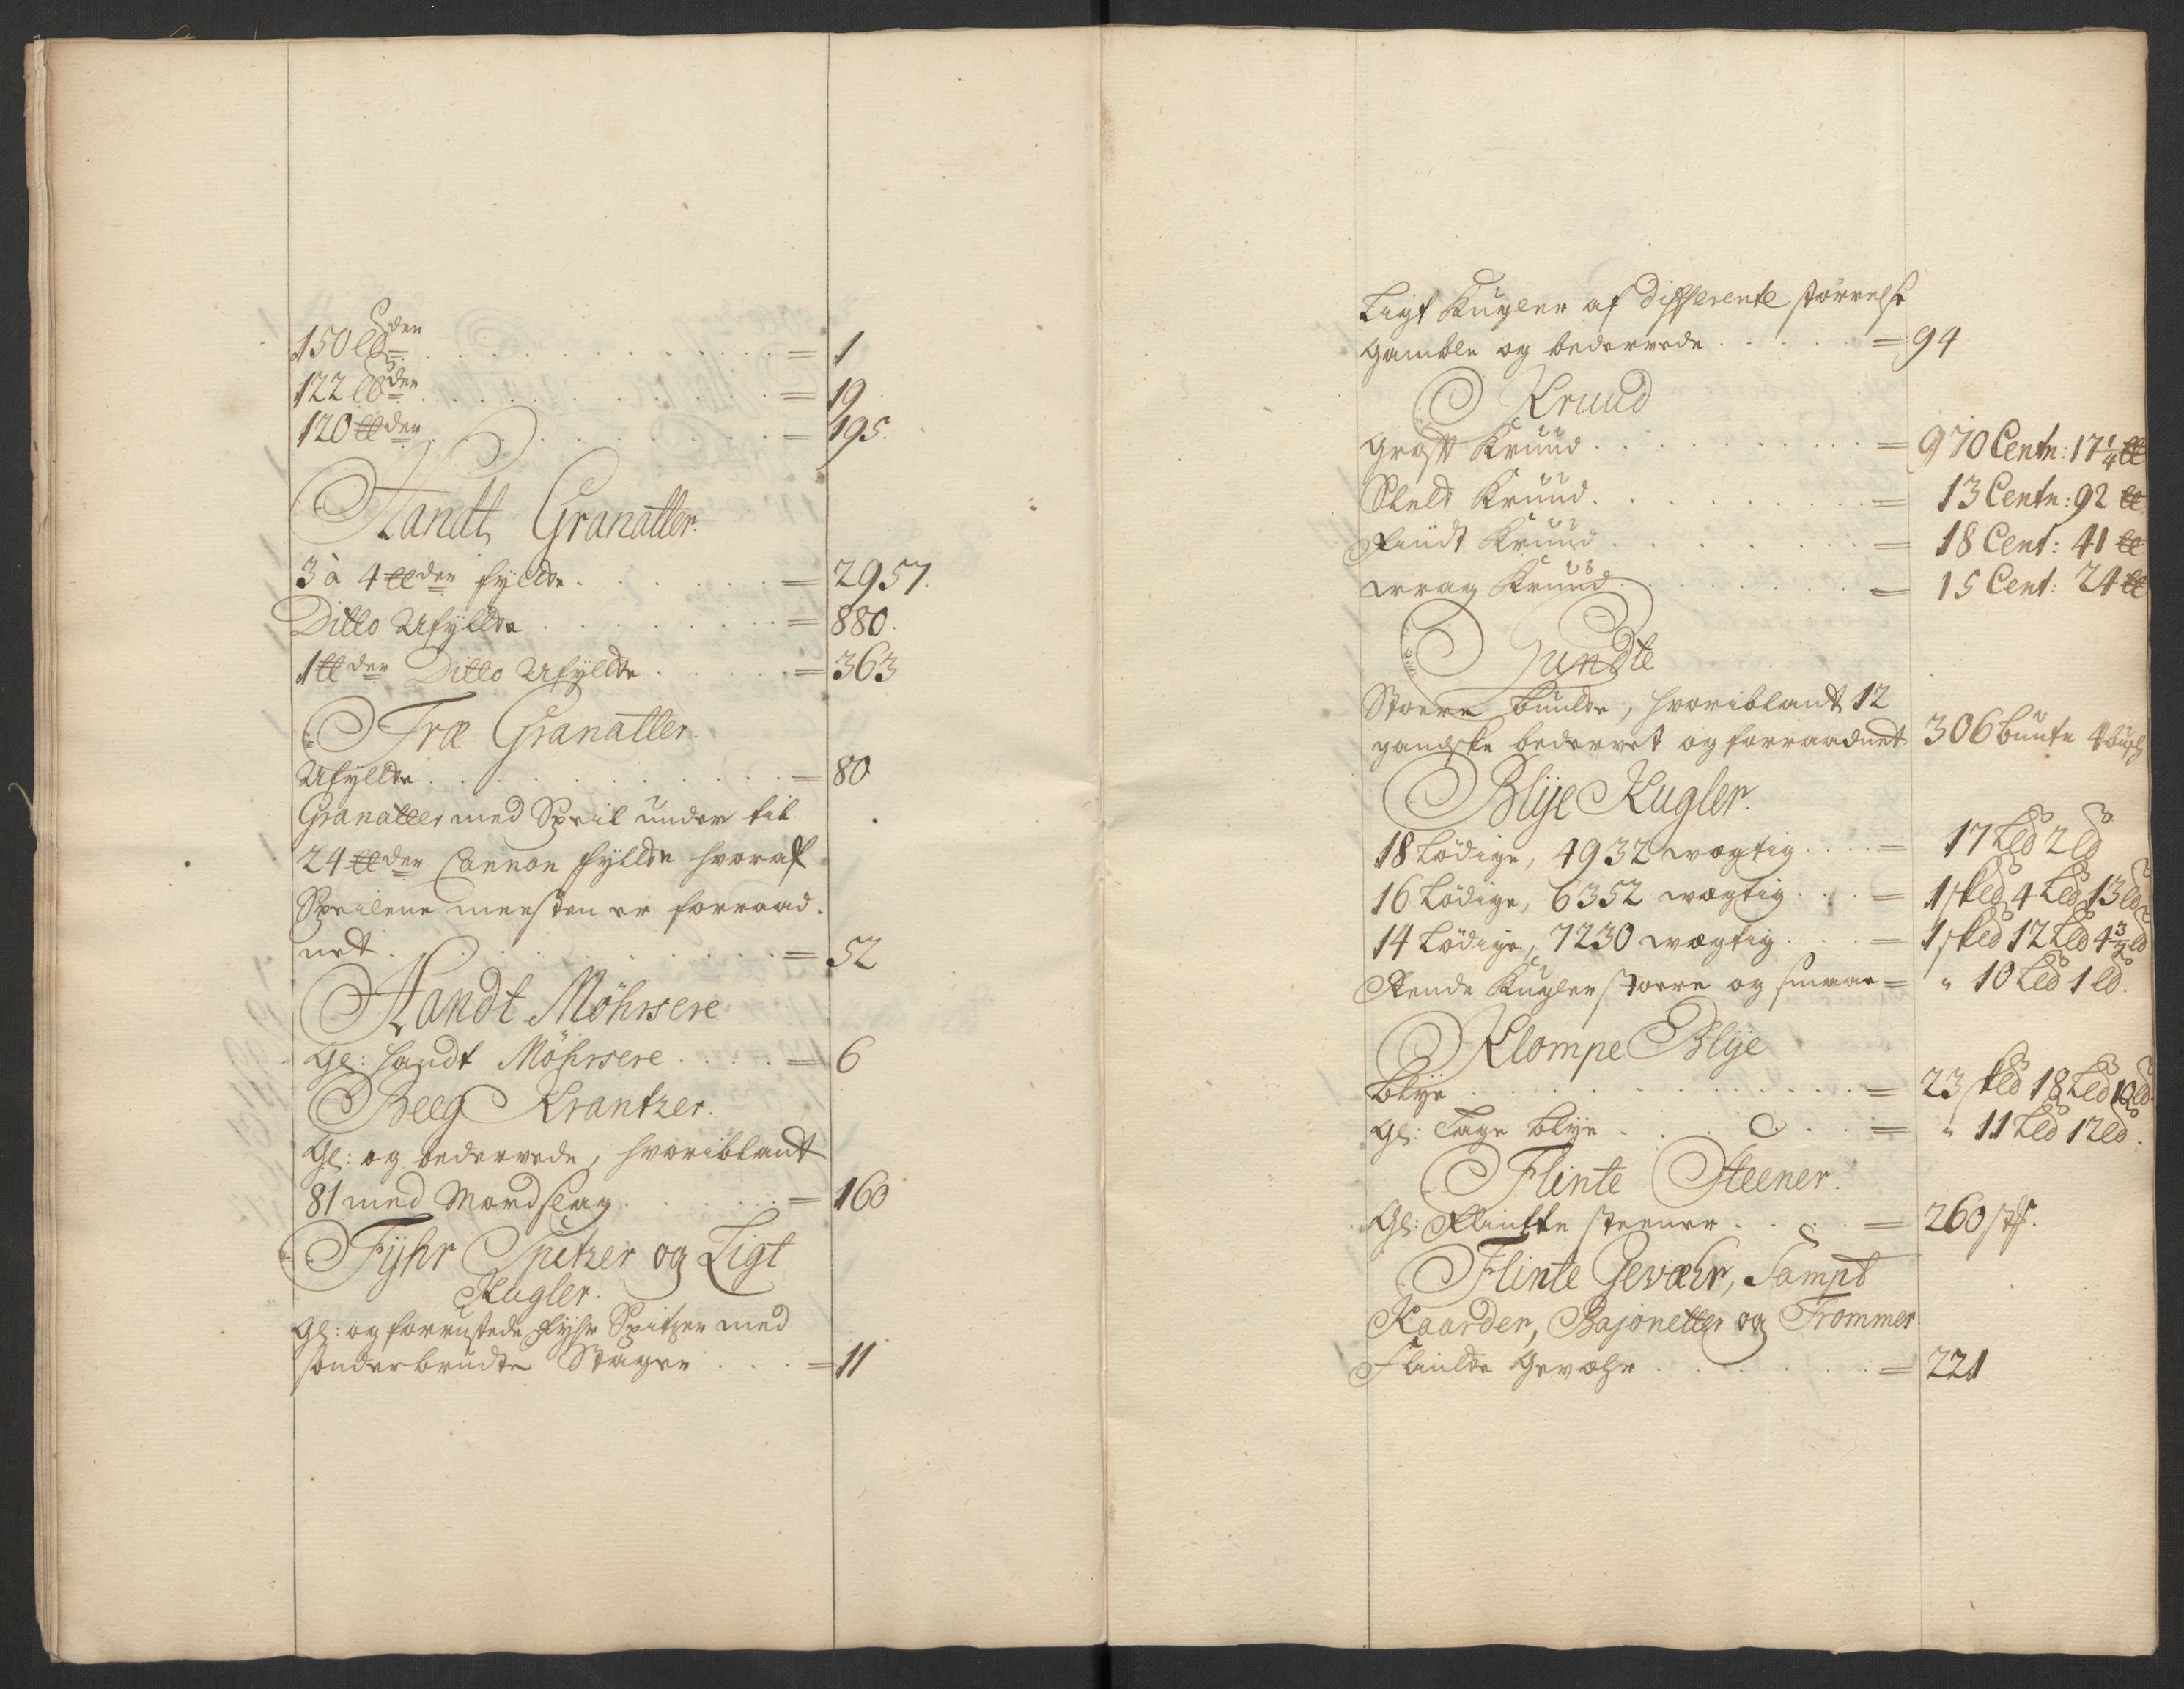 150 ℔den = 1
122 ℔den = 19
120 ℔den = 195.
Handt Granatter.
3 à 4 ℔den fyldte = 2957.
Ditto Ufyldte = 880.
1 ℔den Ditto Ufyldte = 363
Træ Granatter.
Ufyldte = 80
Granatter med Speil under til
24 ℔den Cannon fyldte hvoraf
Speilene meesten er forraad-
net = 52
Handt Möhrsere
Gl: Handt Möhrsere = 6
Beeg Krantzer.
Gl: og bedervede, hvoriblant
81 med Mordslag = 160
Fyhr Spitzer og Ligt
Kugler.
Gl: og forrustede Fyhr Spitzer med
sönderbrudte Stager = 11
Ligt Kugler af differente störrelse
gamble og bedervede = 94
Krund
Groft Krüud = 970 Centn: 17 1/4 ℔
Skeld Krüud = 13 Centn: 92 ℔
Fiint Krüud = 18 Cent: 41 ℔
Wrag Krüud = 15 Cent: 24 ℔
Lundte
Stoere bundte, hvoriblant 12
gandske bedervet og forraadnet 306 bunte
Blye Kugler.
18 Lödige, 4932 wægtig = 17 L℔ 2 ℔
16 Lödige, 6352 wægtig = 1 sk℔ 4 L℔ 13 ℔
14 Lödige, 7230 wægtig = 1 sk℔ 12 L℔ 4 3/4 ℔
Rende Kugler storre og smaae = " 10 L℔ 1 ℔.
Klompe Blye
Blye = 23 sk℔ 18 L℔ 10 ℔.
Gl: Tage blye = " 11 L℔ 12 ℔.
Flinte Steener.
Gl: Flinte steener = 260 stk.
Flinte Gevæhr, Sampt
Kaarder, Bajonetter og Trommer
Flindte Gevæhr = 221